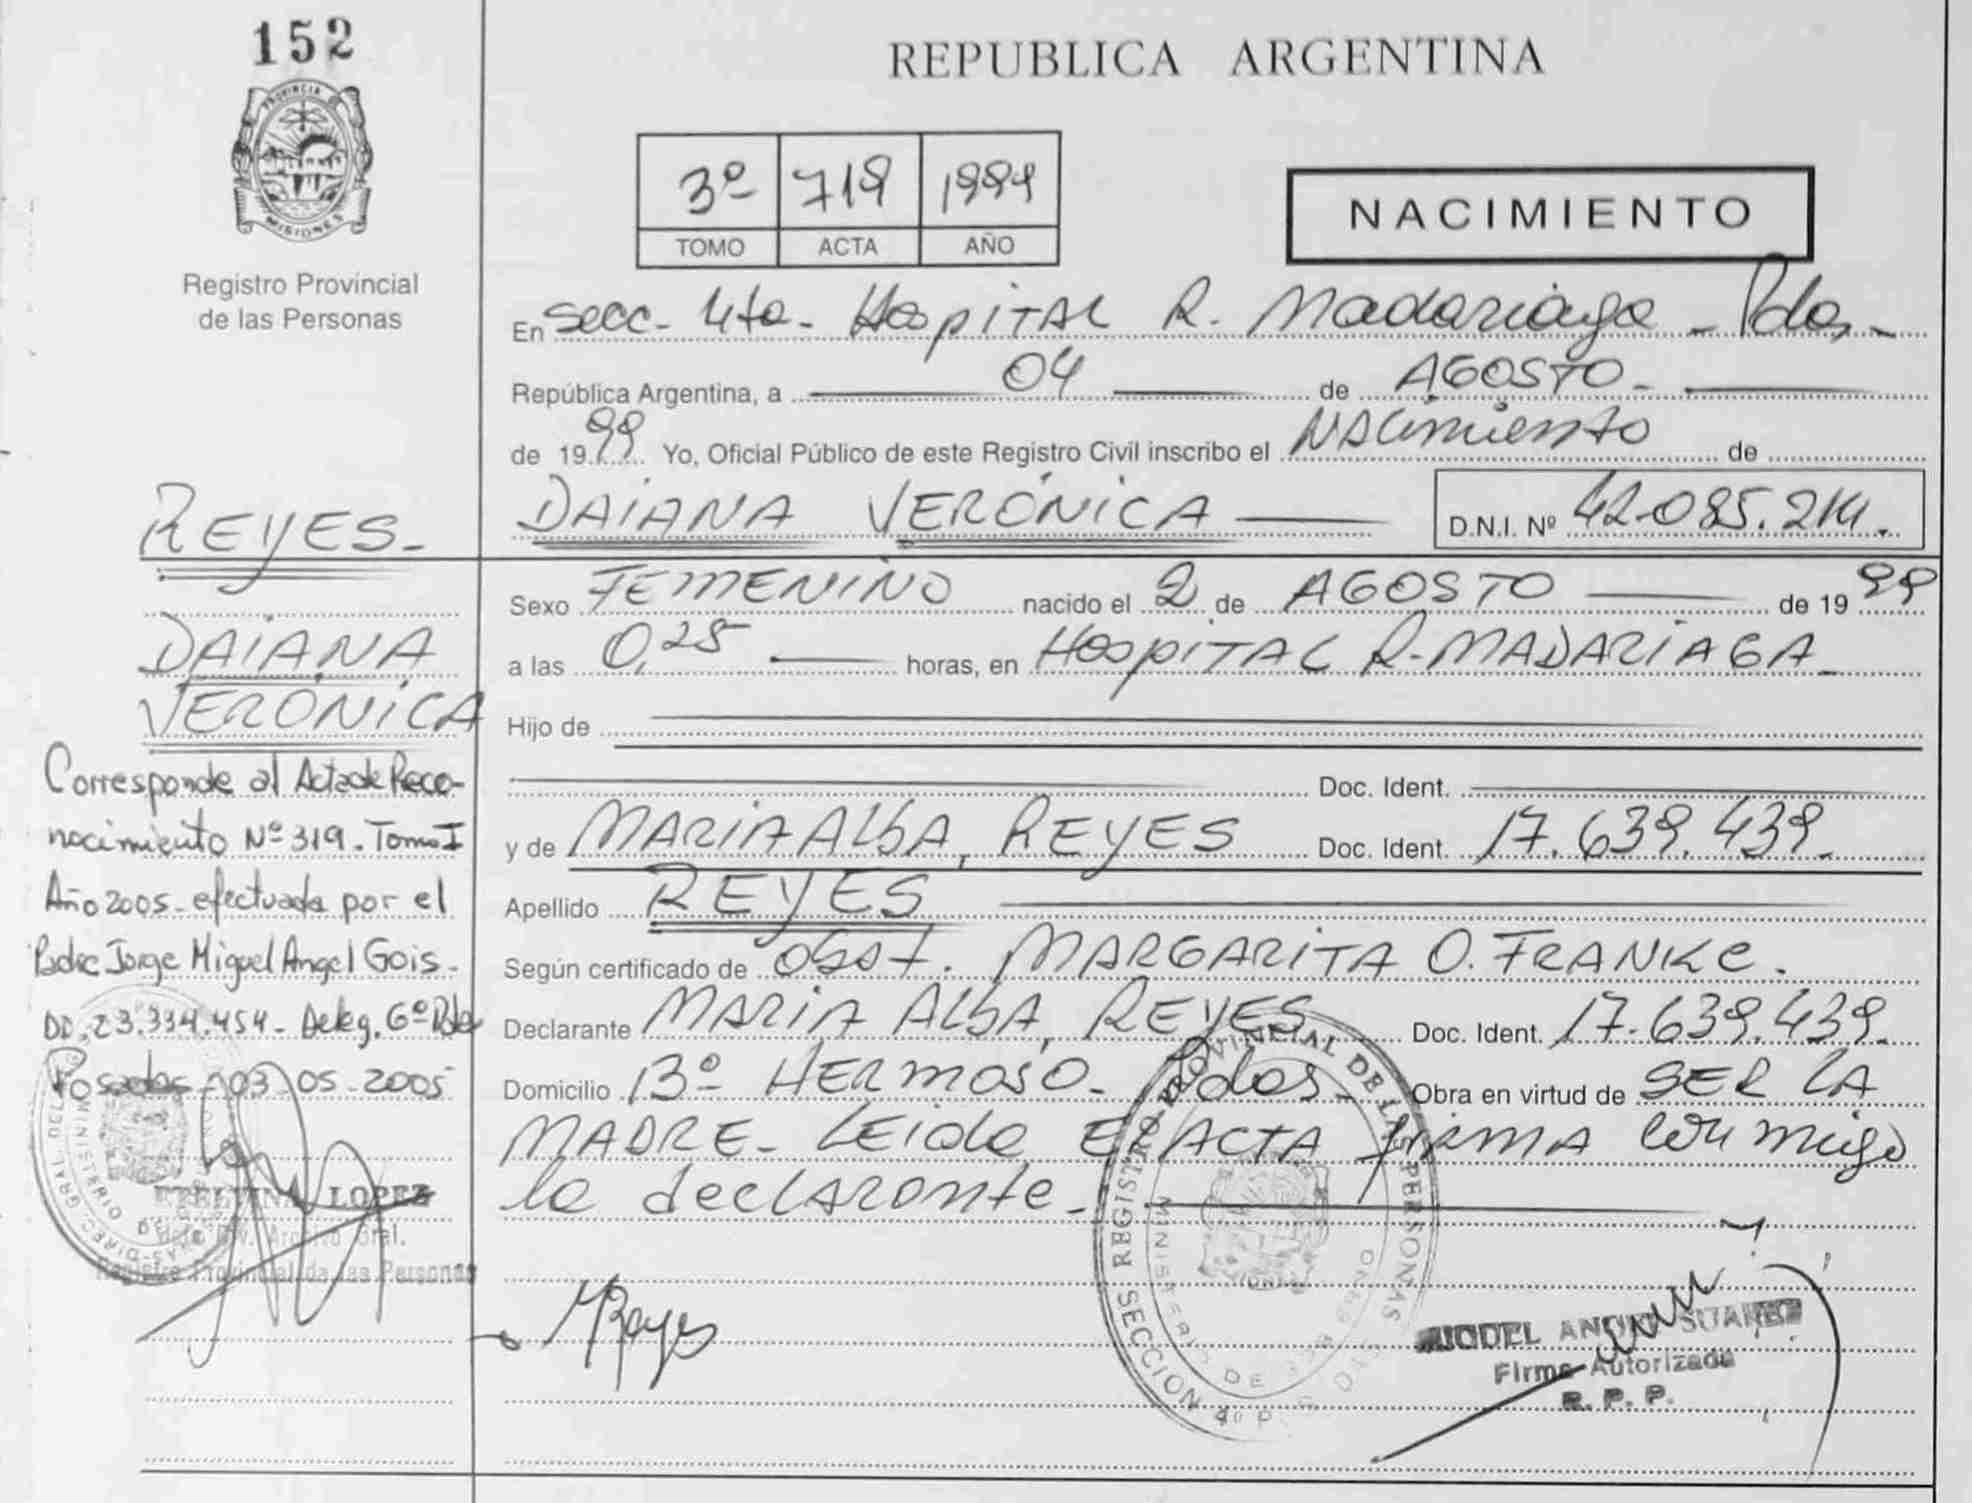 152
PROVINCIA
MISIONES
Registro Provincial
de las Personas
REPUBLICA ARGENTINA
3º 719 1999
TOMO ACTA AÑO
NACIMIENTO
En Secc. 4ta. Hospital R. Madariaga - Pdas -
República Argentina, a 04 de AGOSTO.
de 1999 Yo, Oficial Público de este Registro Civil inscribo el NACimiento de
DAIANA VERÓNICA D.N.I. Nº 42.085.214.
Sexo FEMENINO nacido el 2 de AGOSTO de 1999
a las 0,25 horas, en HOSPITAL R. MADARIAGA
Hijo de
Doc. Ident.
y de MARIA ALBA, REYES Doc. Ident. 17.639.439.
Apellido REYES
Según certificado de Obst. MARGARITA O. FRANKE.
Declarante MARIA ALBA, REYES Doc. Ident. 17.639.439.
Domicilio Bº HERMOSO - Pdas. Obra en virtud de SER LA
MADRE - Leida El ACTA firma conmigo
la declarante.
MReyes
REGISTRO PROVINCIAL DE LAS PERSONAS
SECCION
SUAREZ
Firma Autorizada
R. P. P.
REYES -
DAIANA
VERÓNICA
Corresponde al Acta de Reco-
nocimiento Nº 319. Tomo I
Año 2005 - efectuada por el
Padre Jorge Miguel Angel Gois -
DD. 23.334.454 - Deleg. 6º Pdas
Posadas 03 - 05 - 2005
LOPEZ
Registro Provincial de las Personas